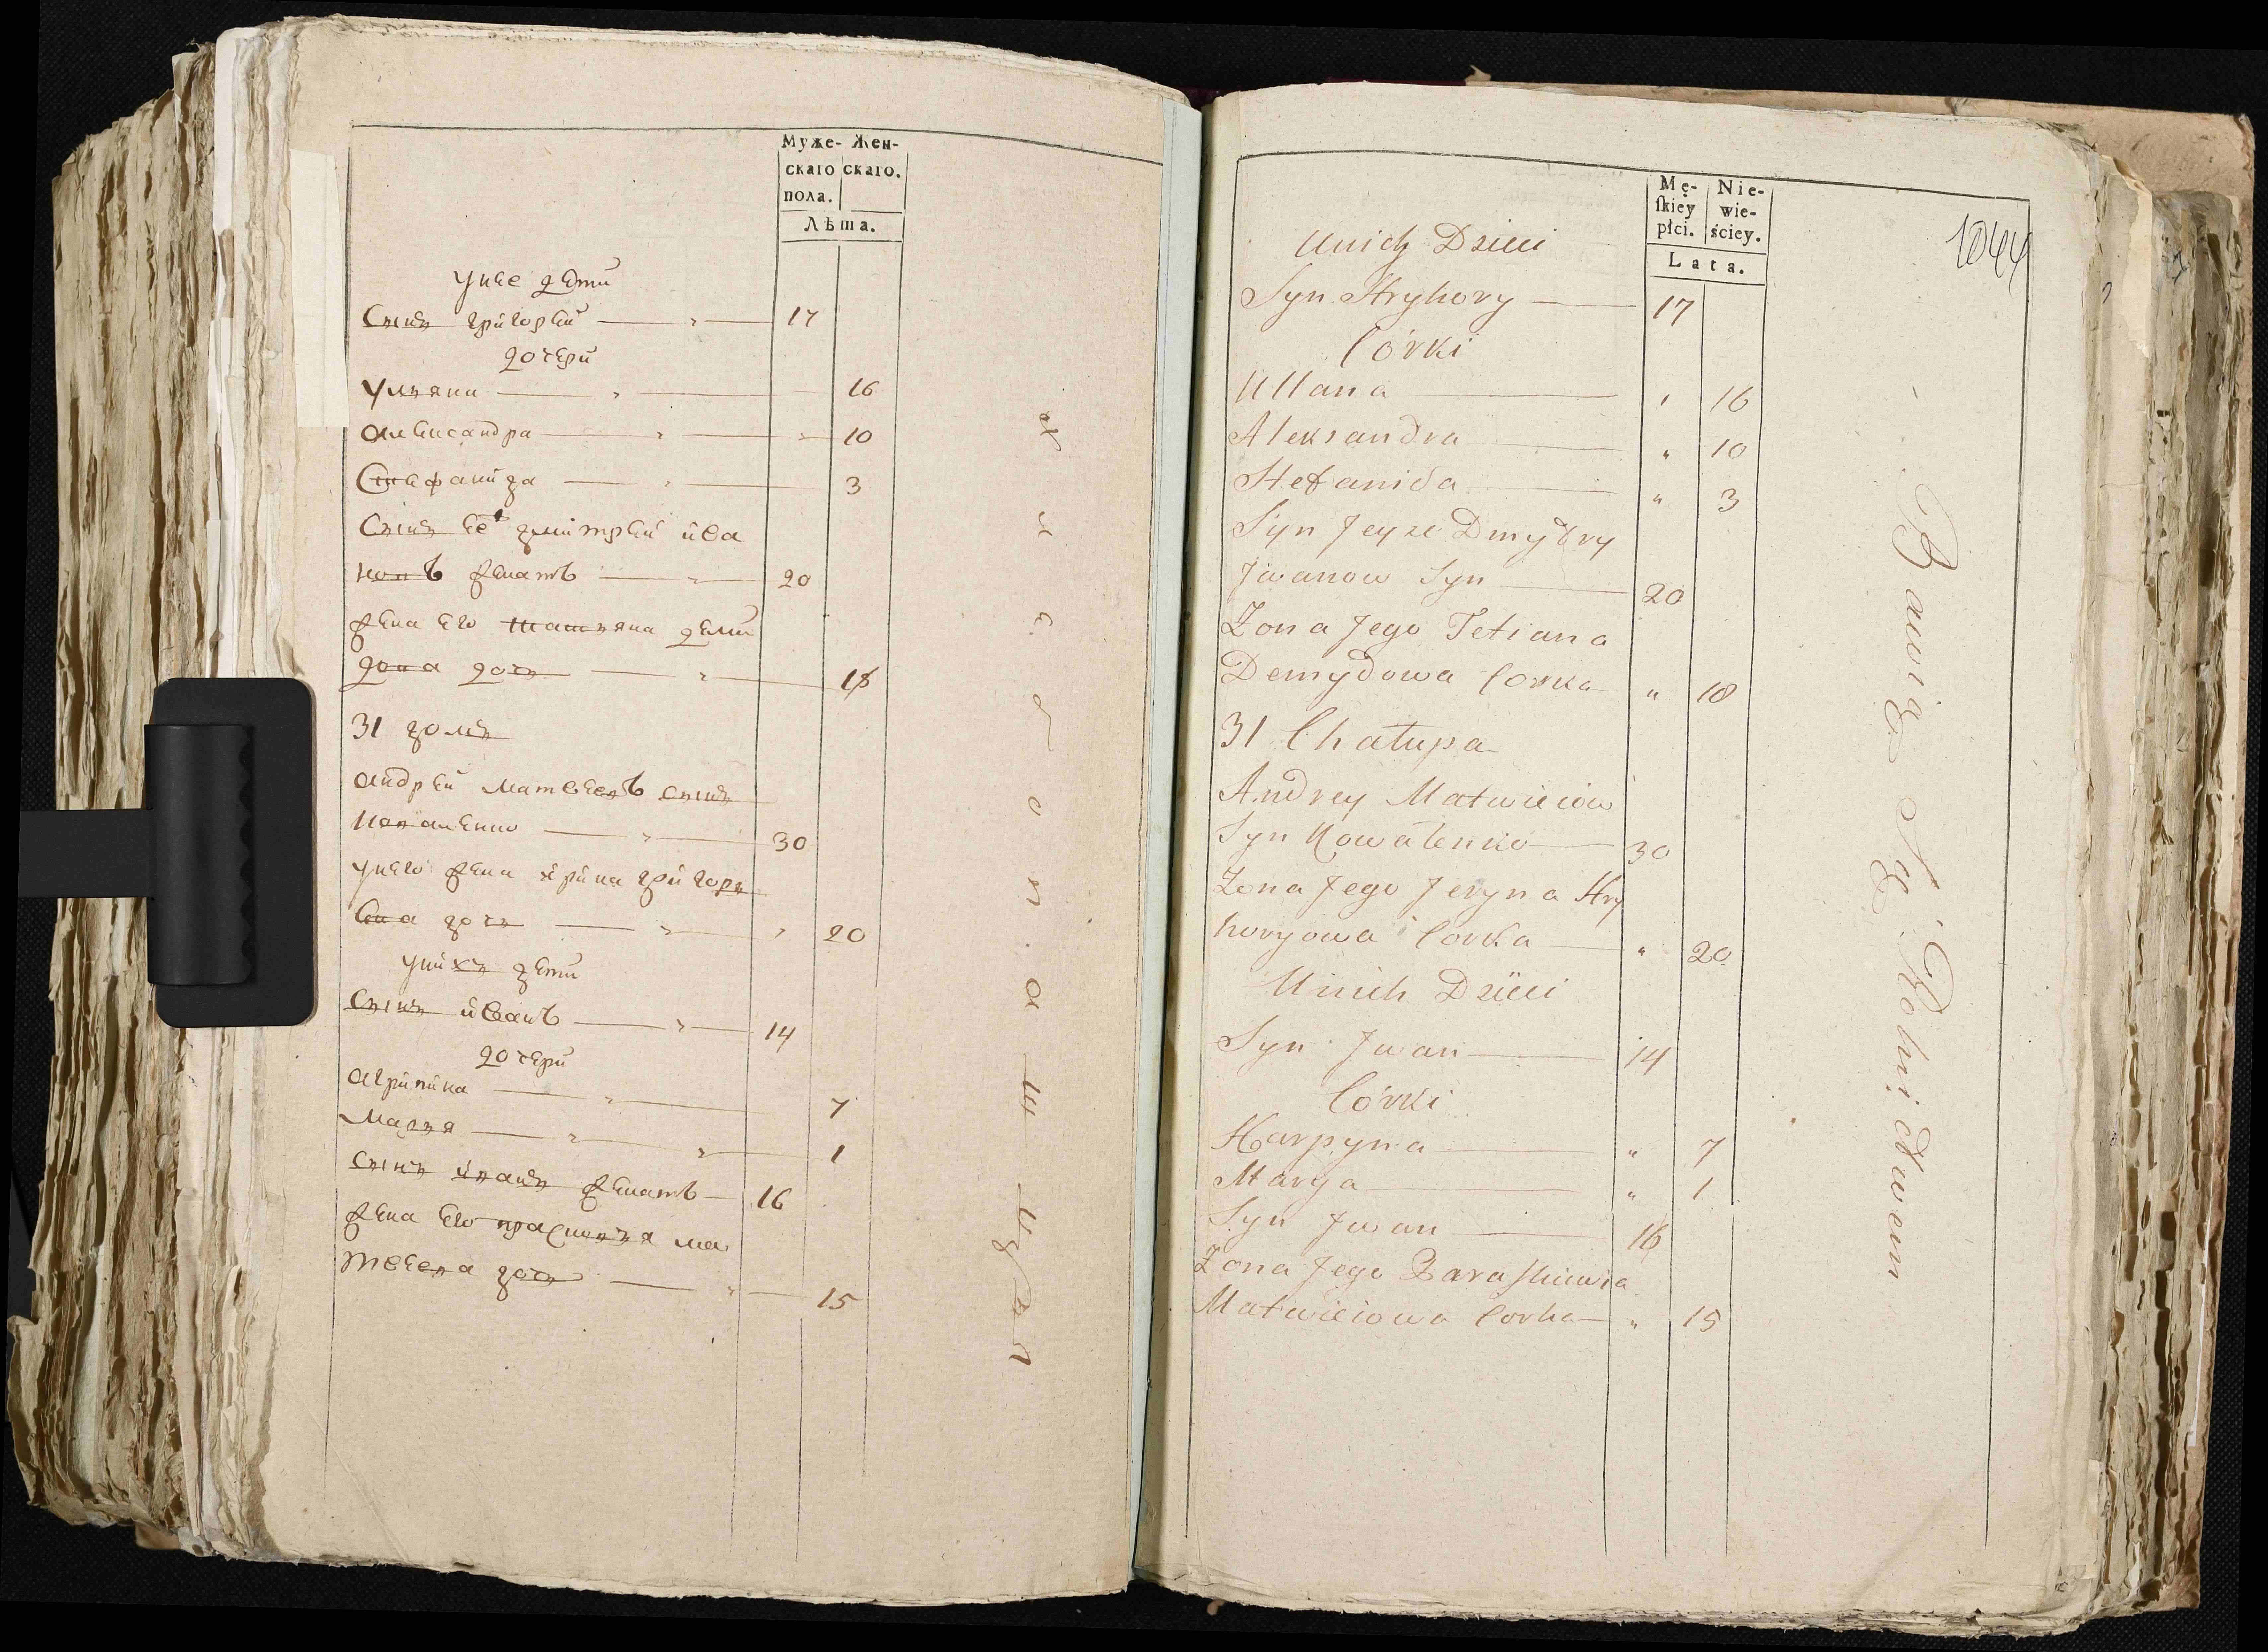 Муже- Жен-
скаго скаго.
пола.
Лѣта.
унее дети
Сынъ григорей 17
дочери
Ульяна 16
александра 10
Стефанида 3
Сынъ ее дмитрей ива
новъ женатъ 20
жена его татьяна деми
дова дочь 18
31 домъ
андрей матвеевъ сынъ
коваленко 30
унего жена ирина григорь
ева дочь 20
унихъ дети
Сынъ иванъ 14
дочери
агрипина 7
Марья 1
сынъ иванъ женатъ 16
жена его прасковья ма
твеева дочь 15
Mę- Nie-
skiey wie-
płci. ściey.
Lata.
1044
Unich Dzieci
Syn Hryhory 17
Córki
Ullana 16
Aleksandra 10
Stefanida 3
Syn Jeyże Dmytry
Jwanow Syn 20
Żona Jego Tetiana
Demydowa Corka 18
31 Chałupa
Andrey Matwieiow
Syn Kowalenko 30
Żona Jego Jeryna Hry
horyowa Corka 20
Unich Dzieci
Syn Jwan 14
Córki
Harpyna 7
Marya 1
Syn Jwan 16
Żona Jego Paraskiewia
Matwieiowa Corka 15
Bawią Się Rolnictwem